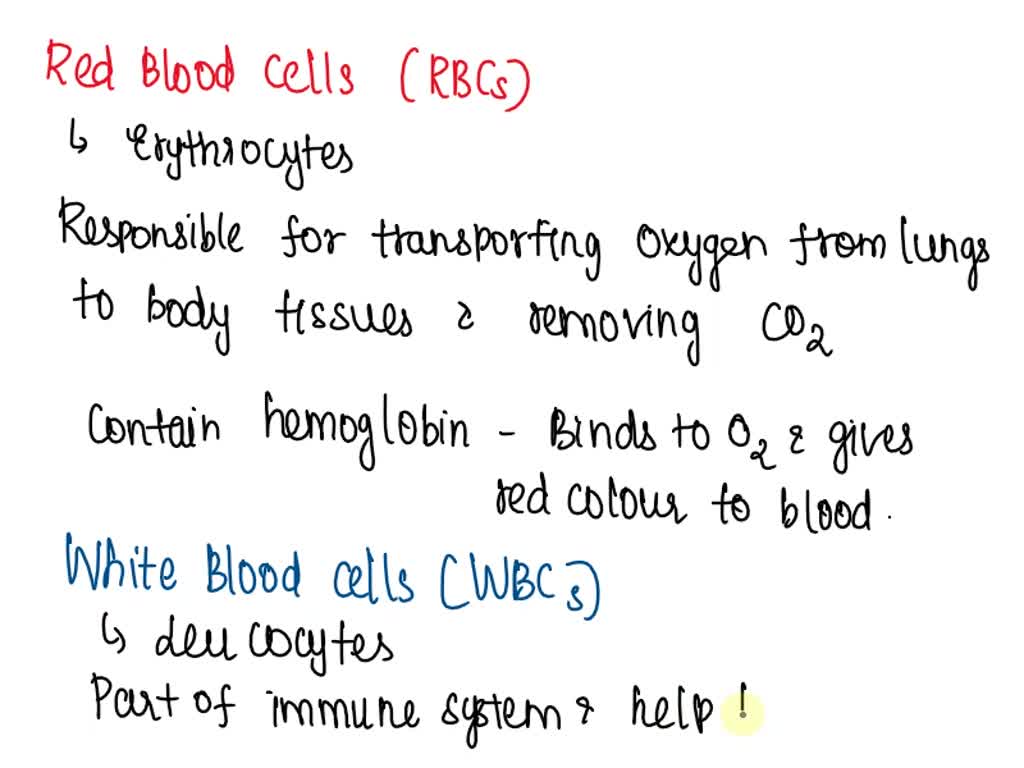 Red Blood Cells (RBCs)
↳ Erythrocytes
Responsible for transporting oxygen from lungs
to body tissues & removing CO2
Contain hemoglobin - Binds to O2 & gives
red colour to blood.
White Blood Cells (WBCs)
↳ Leucocytes
Part of immune system & help